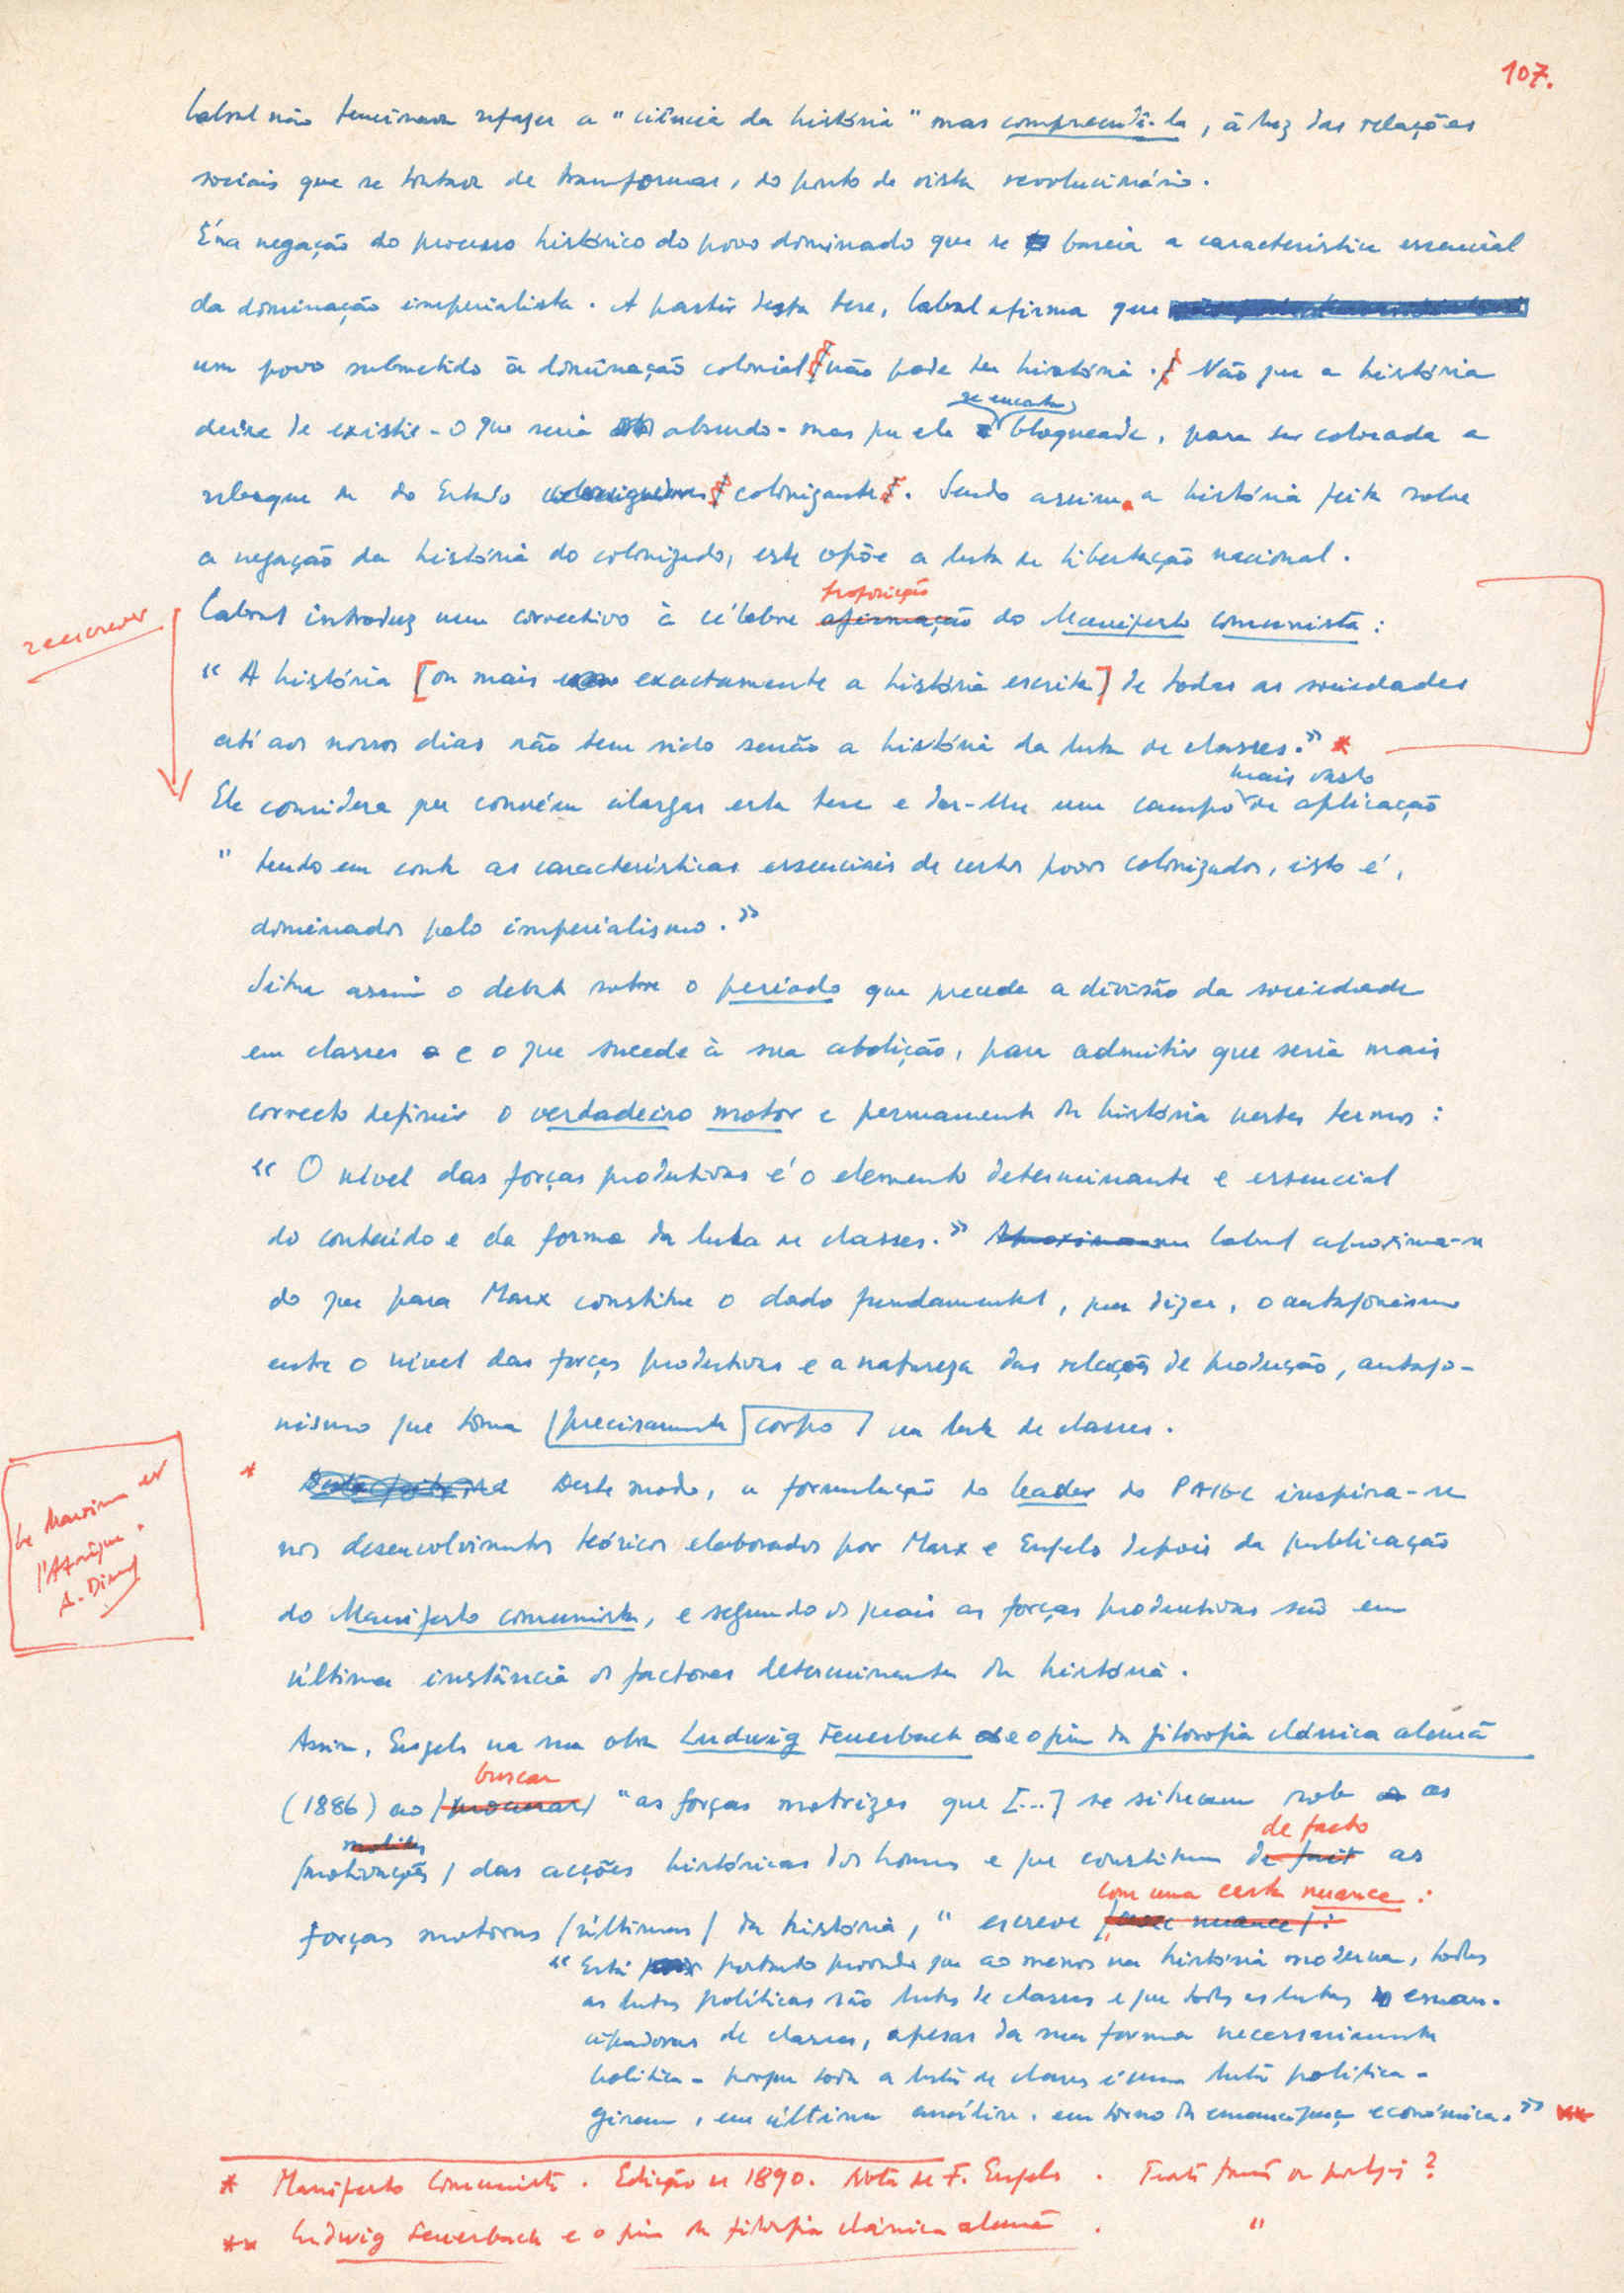 107.
Cabral não tencionava refazer a "ciência da história" mas compreendê-la, à luz das relações
sociais que se tratava de transformar, do ponto de vista revolucionário.
É na negação do processo histórico do povo dominado que se baseia a característica essencial
da dominação imperialista. A partir desta tese, Cabral afirma que
um povo submetido à dominação colonial não pode ter história. Não que a história
deixe de existir - o que seria absurdo - mas que ela se encontra bloqueada, para ser colocada a
reboque da do Estado colonizante. Sendo assim, a história feita sobre
a negação da história do colonizado, este opõe a luta de libertação nacional.
reescrever
Cabral introduz um correctivo à célebre afirmação proposição do Manifesto comunista:
"A história [ou mais exactamente a história escrita] de todas as sociedades
até aos nossos dias não tem sido senão a história da luta de classes." *
Ele considera que convém alargar esta tese e dar-lhe um campo mais vasto de aplicação
"tendo em conta as características essenciais de certos povos colonizados, isto é,
dominados pelo imperialismo."
Situa assim o debate sobre o período que precede a divisão da sociedade
em classes e o que sucede à sua abolição, para admitir que seria mais
correcto definir o verdadeiro motor e permanente da história nestes termos:
"O nível das forças produtivas é o elemento determinante e essencial
do conteúdo e da forma da luta de classes." Cabral aproxima-se
do que para Marx constitui o dado fundamental, quer dizer, o antagonismo
entre o nível das forças produtivas e a natureza das relações de produção, antago-
nismo que toma /precisamente/ corpo / na luta de classes.
* Deste modo, a formulação do leader do PAIGC inspira-se
nos desenvolvimentos teóricos elaborados por Marx e Engels depois da publicação
do Manifesto comunista, e segundo os quais as forças produtivas são em
última instância os factores determinantes da história.
Le Marxisme et
l'Afrique.
A. Dieng
Assim, Engels na sua obra Ludwig Feuerbach e o fim da filosofia clássica alemã
(1886) ao /procurar/ buscar "as forças motrizes que [...] se situam sob as
/motivações/ das acções históricas dos homens e que constituem de fait de facto as
forças motoras /últimas/ da história," escreve /avec nuance/: com uma certa nuance:
"Está portanto provado que ao menos na história moderna, todas
as lutas políticas são lutas de classes e que todas as lutas eman-
cipadoras de classes, apesar da sua forma necessariamente
política - porque toda a luta de classes é uma luta política -
giram, em última análise, em torno da emancipação económica." **
* Manifesto Comunista. Edição de 1890. Nota de F. Engels.
** Ludwig Feuerbach e o fim da filosofia clássica alemã. "